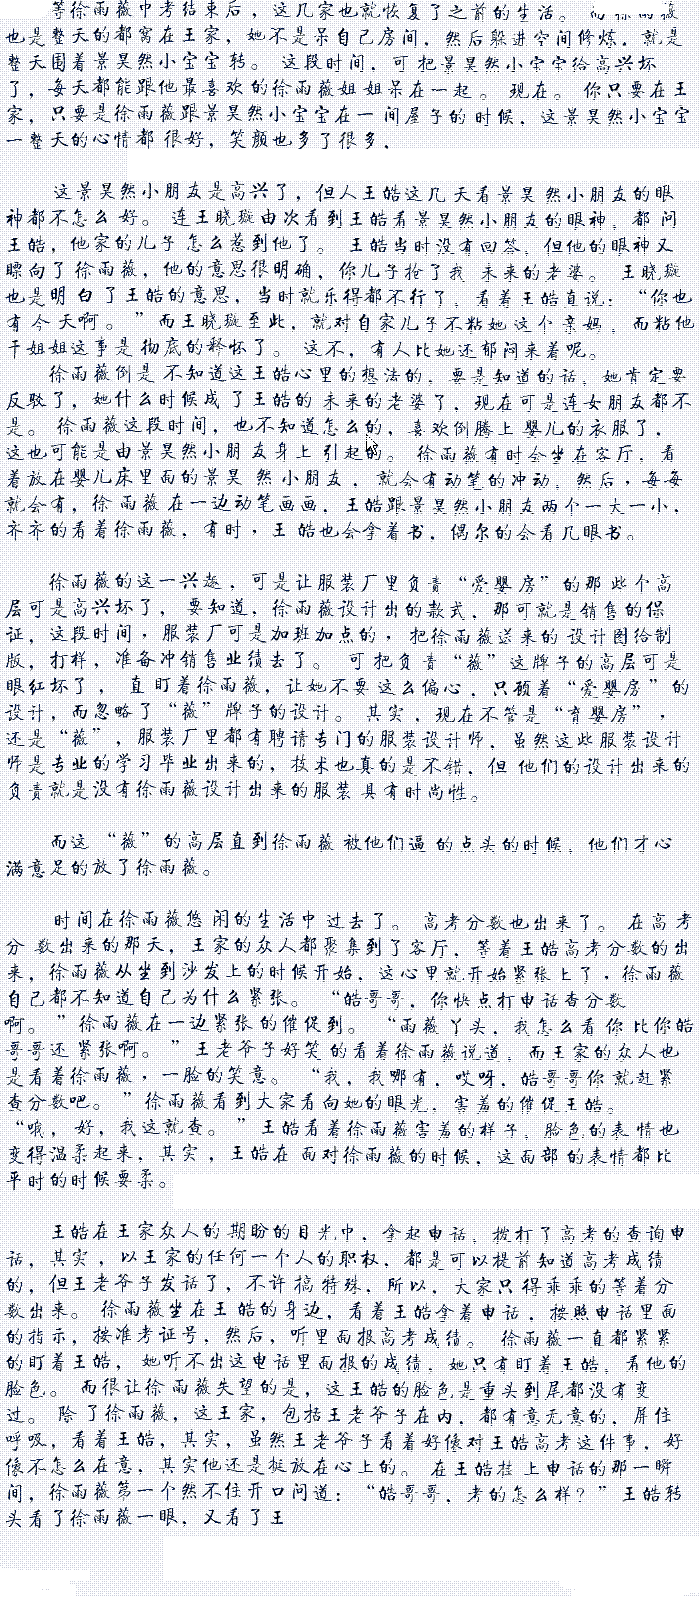 等徐雨薇中考结束后，这几家也就恢复了之前的生活。而徐雨薇
也是整天的都窝在王家，她不是呆自己房间，然后躲进空间修炼，就是
整天围着景昊然小宝宝转。 这段时间，可把景昊然小宝宝给高兴坏
了，每天都能跟他最喜欢的徐雨薇姐姐呆在一起。 现在。 你只要在王
家，只要是徐雨薇跟景昊然小宝宝在一间屋子的时候，这景昊然小宝宝
一整天的心情都很好，笑颜也多了很多，
这景昊然小朋友是高兴了，但人王皓这几天看景昊然小朋友的眼
神都不怎么好。 连王晓璇由次看到王皓看景昊然小朋友的眼神，都问
王皓，他家的儿子怎么惹到他了。 王皓当时没有回答，但他的眼神又
瞟向了徐雨薇，他的意思很明确，你儿子抢了我未来的老婆。 王晓璇
也是明白了王皓的意思，当时就乐得都不行了，看着王皓直说：“你也
有今天啊。”而王晓璇至此，就对自家儿子不粘她这个亲妈，而粘他
干姐姐这事是彻底的释怀了。 这不，有人比她还郁闷来着呢。
徐雨薇倒是不知道这王皓心里的想法的，要是知道的话，她肯定要
反驳了，她什么时候成了王皓的未来的老婆了，现在可是连女朋友都不
是。 徐雨薇这段时间，也不知道怎么的，喜欢倒腾上婴儿的衣服了，
这也可能是由景昊然小朋友身上引起的。 徐雨薇有时会坐在客厅，看
着放在婴儿床里面的景昊然小朋友，就会有动笔的冲动，然后，每每
就会有，徐雨薇在一边动笔画画，王皓跟景昊然小朋友两个一大一小，
齐齐的看着徐雨薇，有时，王皓也会拿着书，偶尔的会看几眼书。
徐雨薇的这一兴趣，可是让服装厂里负责“爱婴房”的那些个高
层可是高兴坏了，要知道，徐雨薇设计出的款式，那可就是销售的保
证，这段时间，服装厂可是加班加点的，把徐雨薇送来的设计图给制
版，打样，准备冲销售业绩去了。 可把负责“薇”这牌子的高层可是
眼红坏了，直盯着徐雨薇，让她不要这么偏心，只顾着“爱婴房”的
设计，而忽略了“薇”牌子的设计。 其实，现在不管是“育婴房”，
还是“薇”，服装厂里都有聘请专门的服装设计师，虽然这些服装设计
师是专业的学习毕业出来的，技术也真的是不错，但他们的设计出来的
负责就是没有徐雨薇设计出来的服装具有时尚性。
而这“薇”的高层直到徐雨薇被他们逼的点头的时候，他们才心
满意足的放了徐雨薇。
时间在徐雨薇悠闲的生活中过去了。 高考分数也出来了。 在高考
分数出来的那天，王家的众人都聚集到了客厅，等着王皓高考分数的出
来，徐雨薇从坐到沙发上的时候开始，这心里就开始紧张上了，徐雨薇
自己都不知道自己为什么紧张。 “皓哥哥，你快点打电话查分数
啊。”徐雨薇在一边紧张的催促到。 “雨薇丫头，我怎么看你比你皓
哥哥还紧张啊。”王老爷子好笑的看着徐雨薇说道，而王家的众人也
是看着徐雨薇，一脸的笑意。 “我，我哪有，哎呀，皓哥哥你就赶紧
查分数吧。”徐雨薇看到大家看向她的眼光，害羞的催促王皓。
“哦，好，我这就查。”王皓看着徐雨薇害羞的样子，脸色的表情也
变得温柔起来，其实，王皓在面对徐雨薇的时候，这面部的表情都比
平时的时候要柔。
王皓在王家众人的期盼的目光中，拿起电话，拨打了高考的查询电
话，其实，以王家的任何一个人的职权，都是可以提前知道高考成绩
的，但王老爷子发话了，不许搞特殊，所以，大家只得乖乖的等着分
数出来。 徐雨薇坐在王皓的身边，看着王皓拿着电话，按照电话里面
的指示，按准考证号，然后，听里面报高考成绩。 徐雨薇一直都紧紧
的盯着王皓，她听不出这电话里面报的成绩，她只有盯着王皓，看他的
脸色。 而很让徐雨薇失望的是，这王皓的脸色是重头到尾都没有变
过。 除了徐雨薇，这王家，包括王老爷子在内，都有意无意的，屏住
呼吸，看着王皓，其实，虽然王老爷子看着好像对王皓高考这件事，好
像不怎么在意，其实他还是挺放在心上的。 在王皓挂上电话的那一瞬
间，徐雨薇第一个然不住开口问道：“皓哥哥，考的怎么样？”王皓转
头看了徐雨薇一眼，又看了王